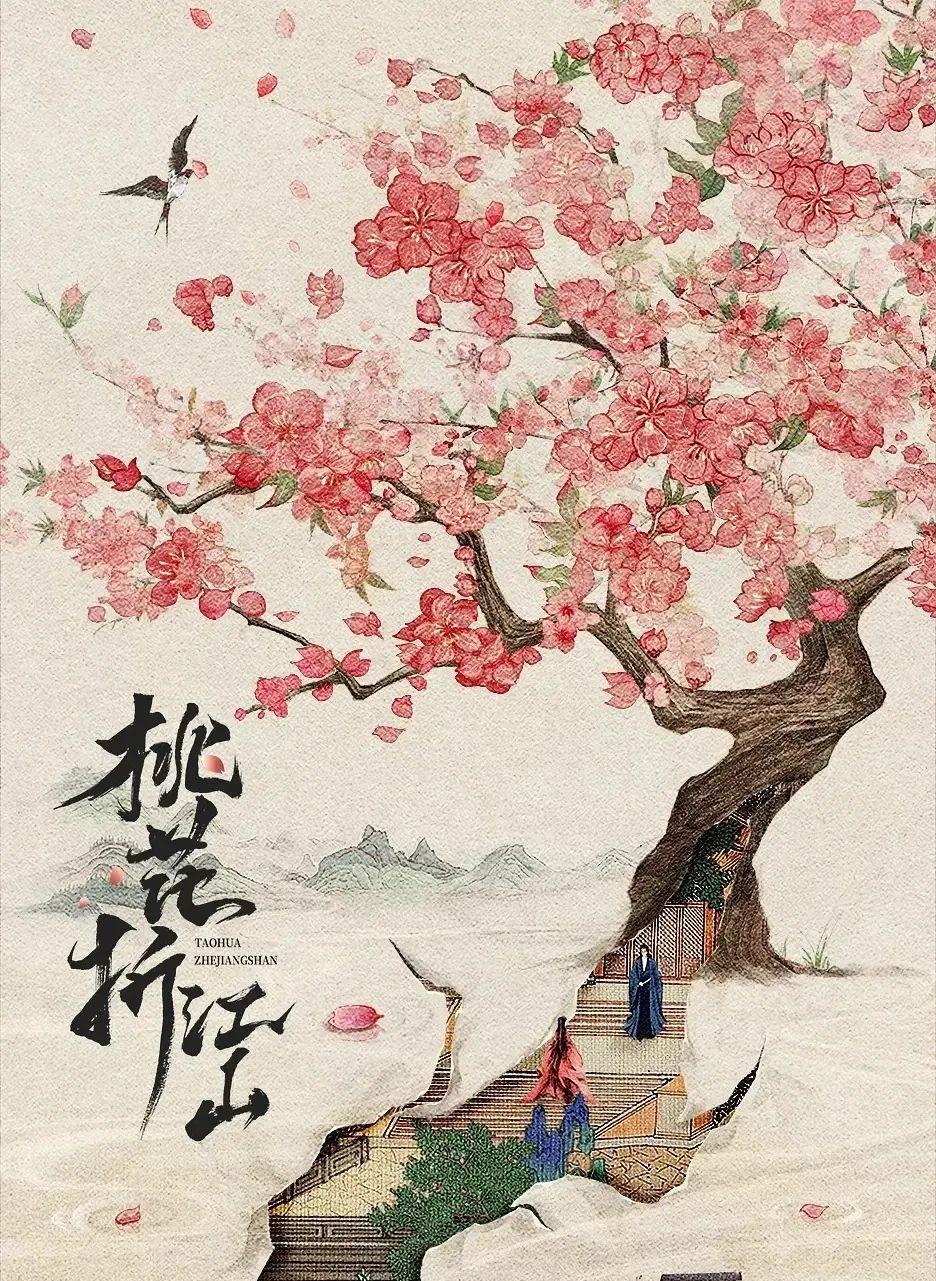 桃花折江山
TAOHUA
ZHEJIANGSHAN